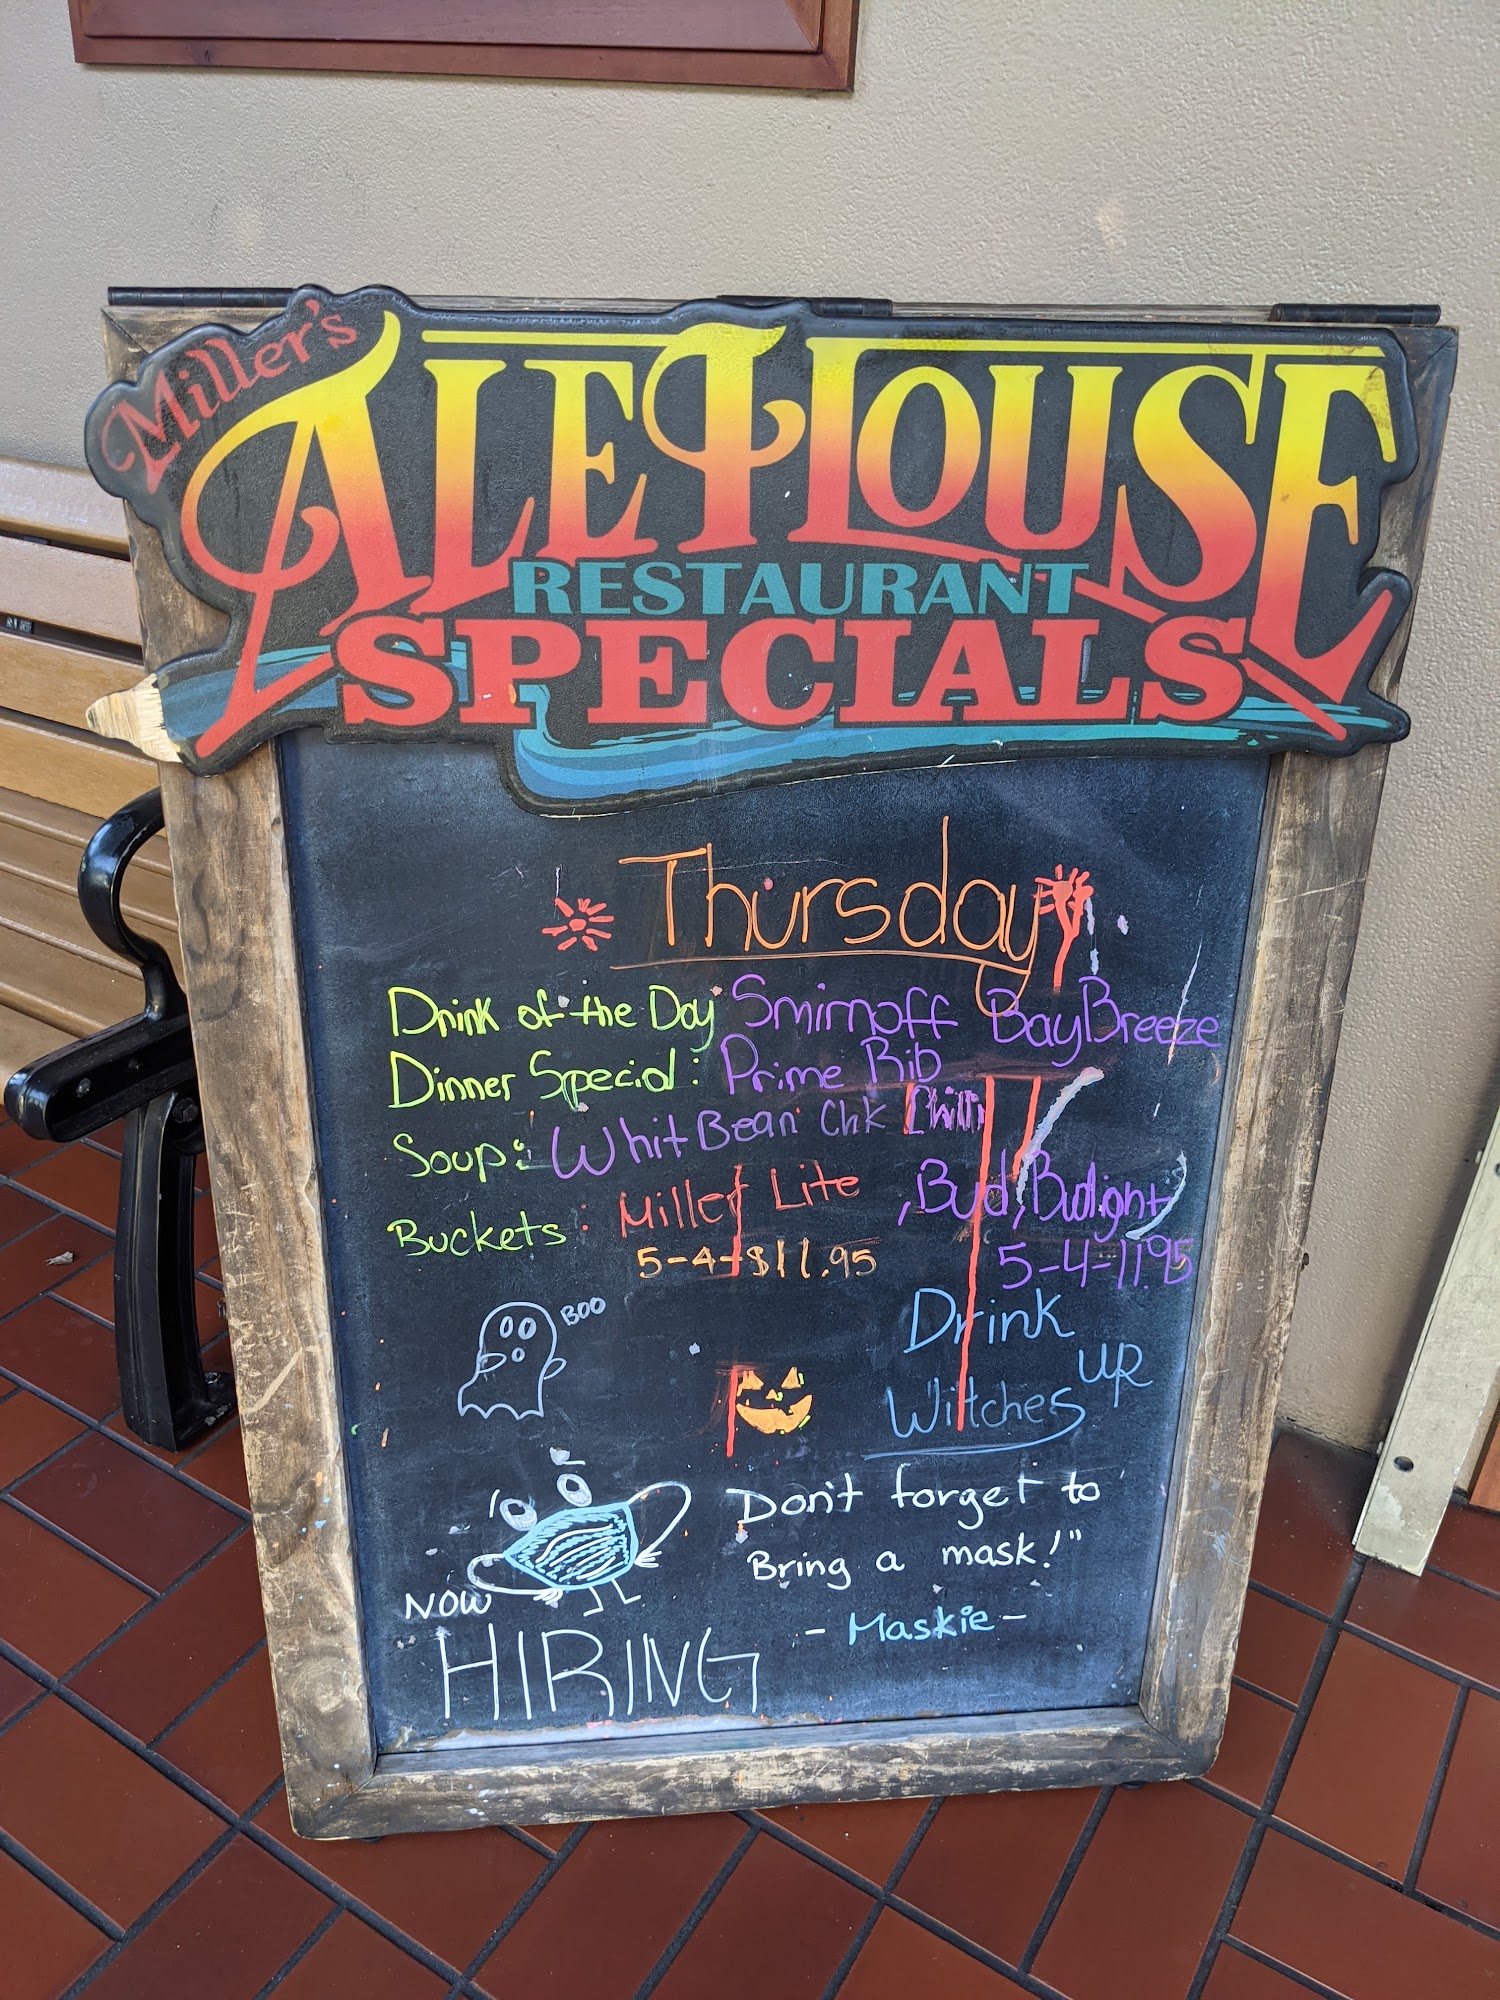 Miller's
ALEHOUSE
RESTAURANT
SPECIALS
Thursday
Drink of the Day Smirnoff BayBreeze
Dinner Special: Prime Rib
Soup: Whit Bean Chk Chilli
Buckets: Miller Lite, Bud, Budlight
5-4-$11.95 5-4-11.95
BOO
Drink
up
Witches
Don't forget to
Bring a mask!"
NOW
- Maskie -
HIRING